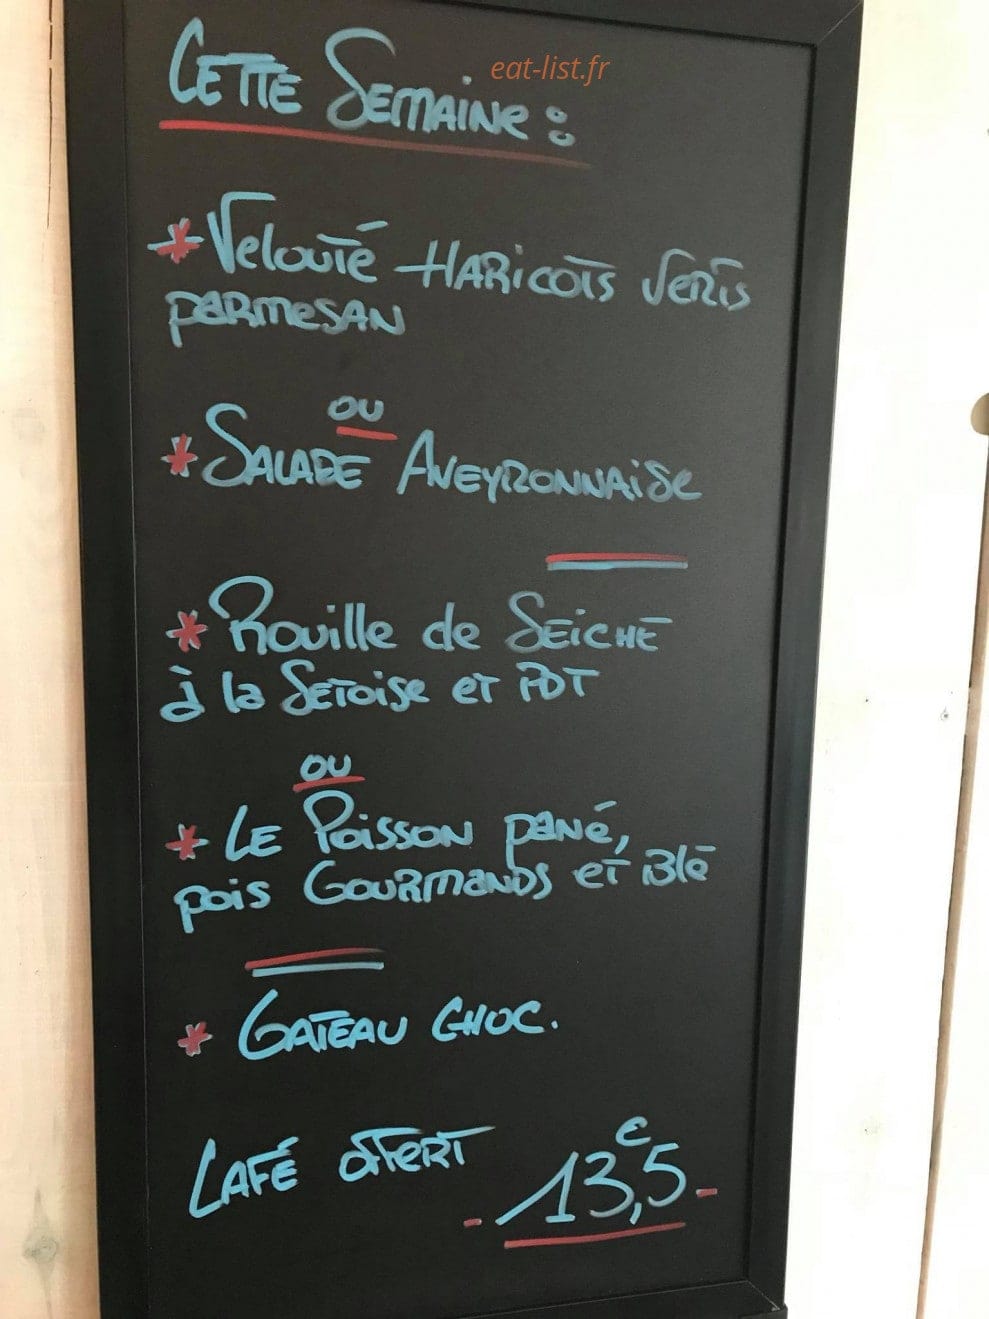 eat-list.fr
Cette Semaine :
* Velouté Haricots verts
parmesan
ou
* Salade Aveyronnaise
* Rouille de Seiche
à la Setoise et PDT
ou
* Le Poisson pané,
pois Gourmands et Blé
* Gateau choc.
Café offert
- 13,5 € -